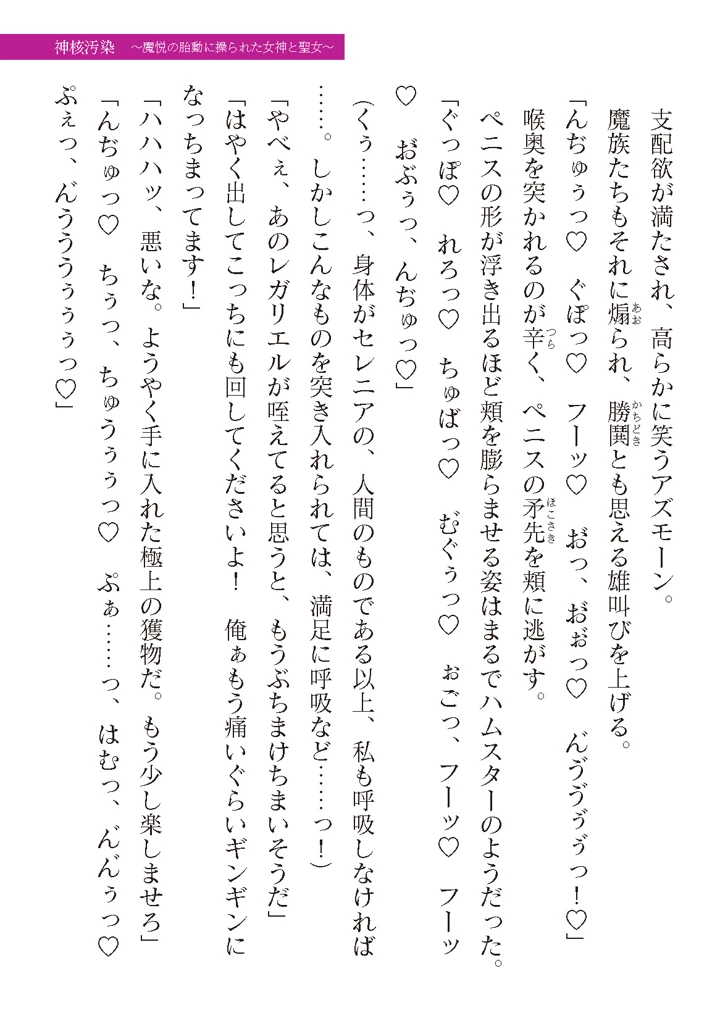 神核汚染　～魔悦の胎動に操られた女神と聖女～
支配欲が満たされ、高らかに笑うアズモーン。
魔族たちもそれに煽られ、勝鬨とも思える雄叫びを上げる。
「んぢゅぅっ♡　ぐぽっ♡　フーッ♡　お゙っ、お゙ぉ゙っ♡　ん゙ゔゔぅ゙ぅ゙っ！♡」
喉奥を突かれるのが辛く、ペニスの矛先を頬に逃がす。
ペニスの形が浮き出るほど頬を膨らませる姿はまるでハムスターのようだった。
「ぐっぽ♡　れろっ♡　ちゅばっ♡　む゙ぐぅっ♡　ぉごっ、フーッ♡　フーッ
♡　お゙ぶぅっ、んぢゅっ♡」
（くぅ……っ、身体がセレニアの、人間のものである以上、私も呼吸しなければ
……。しかしこんなものを突き入れられては、満足に呼吸など……っ！）
「やべぇ、あのレガリエルが咥えてると思うと、もうぶちまけちまいそうだ」
「はやく出してこっちにも回してくださいよ！　俺ぁもう痛いぐらいギンギンに
なっちまってます！」
「ハハハッ、悪いな。ようやく手に入れた極上の獲物だ。もう少し楽しませろ」
「んぢゅっ♡　ちぅっ、ちゅうぅぅっ♡　ぷぁ……っ、はむっ、ん゙ん゙ぅっ♡
ぷぇっ、ん゙うううぅぅぅっ♡」